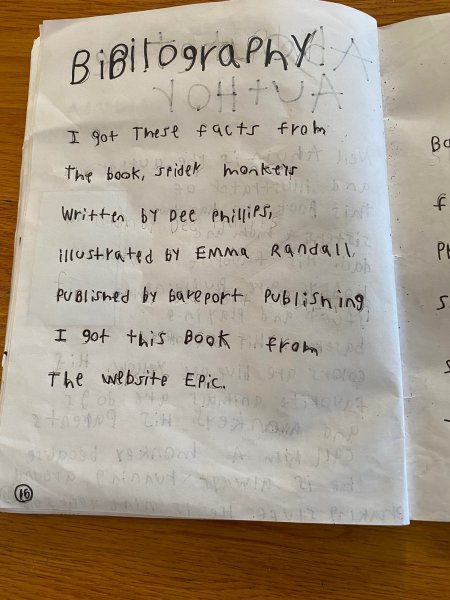 BiBiltography
I got These facts from
The book, spider monkeys
Written by Dee Phillips,
illustrated by Emma Randall,
Published by bareport Publishing
I got this Book from
The website Epic.
16